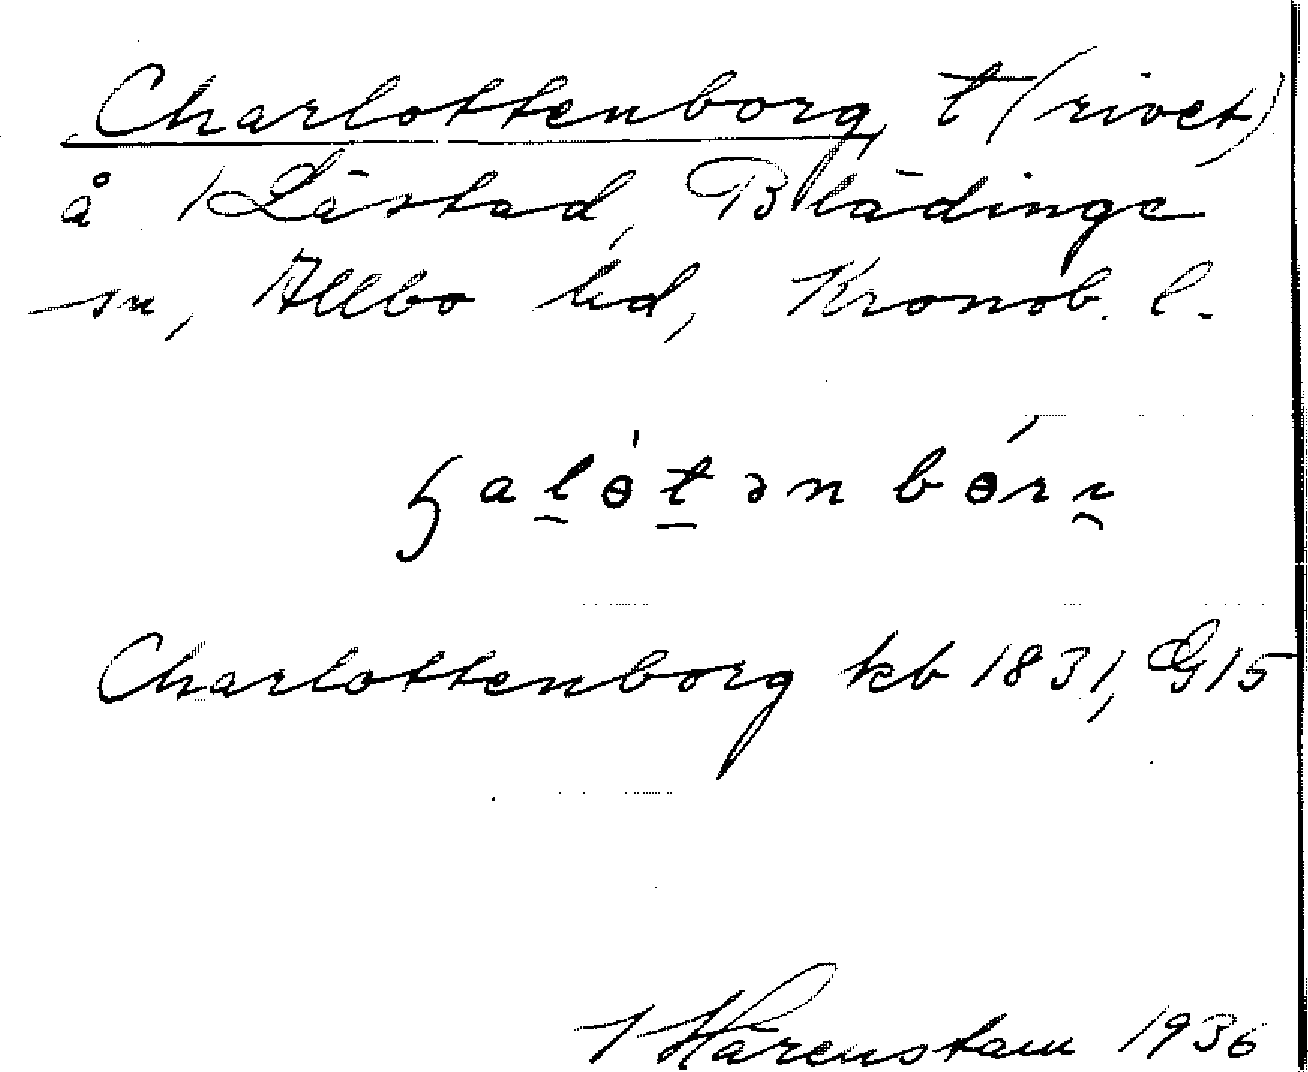 Charlottenborg, t (rivet)
å 1 Låstad, Blädinge
sn, Allbo hd, Kronob. l.
Charlottenborg kb 1831, G15
Hårenstam 1936